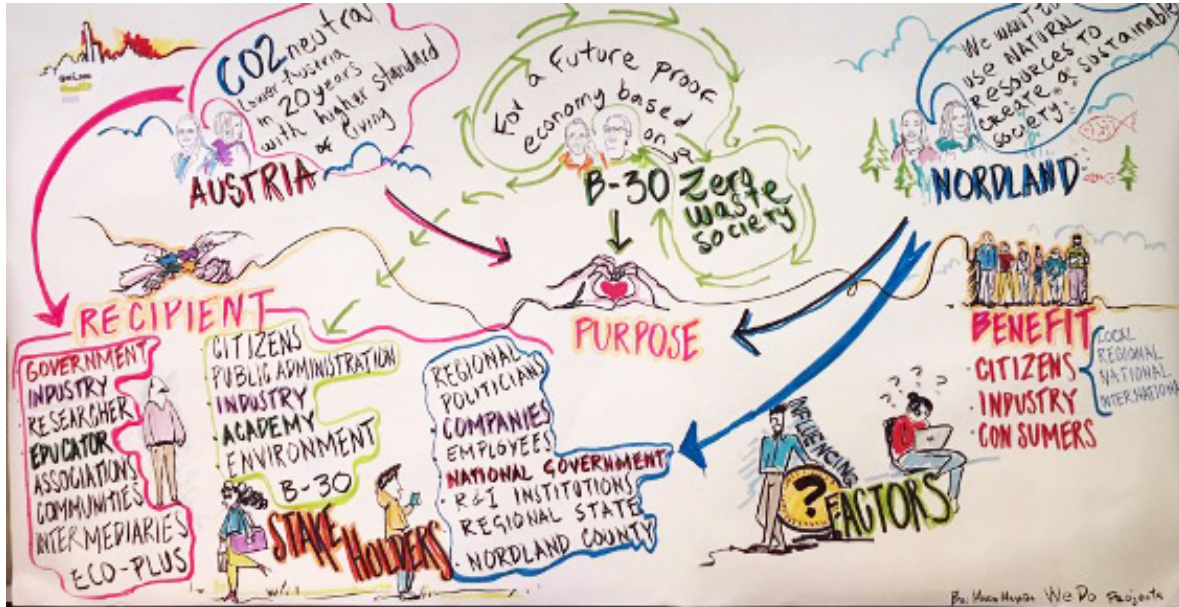 CO2 neutral
Lower Austria
in 20 years
with higher standard
of living
AUSTRIA
For a Future proof
economy based
on a
B-30 Zero
waste
society
We want to
use NATURAL
RESOURCES to
CREATE a sustainable
society
NORDLAND
RECIPIENT
GOVERNMENT
INDUSTRY
RESEARCHER
EDUCATOR
ASSOCIATIONS
COMMUNITIES
INTERMEDIARIES
ECO-PLUS
CITIZENS
PUBLIC ADMINISTRATION
INDUSTRY
ACADEMY
ENVIRONMENT
B-30
STAKE HOLDERS
PURPOSE
REGIONAL
POLITICIANS
COMPANIES
EMPLOYEES
NATIONAL GOVERNMENT
R&I INSTITUTIONS
REGIONAL STATE
NORDLAND COUNTY
BENEFIT
CITIZENS
INDUSTRY
CONSUMERS
LOCAL
REGIONAL
NATIONAL
INTERNATIONAL
INFLUENCING
?
FACTORS
? ? ? ?
By: We Do Projects